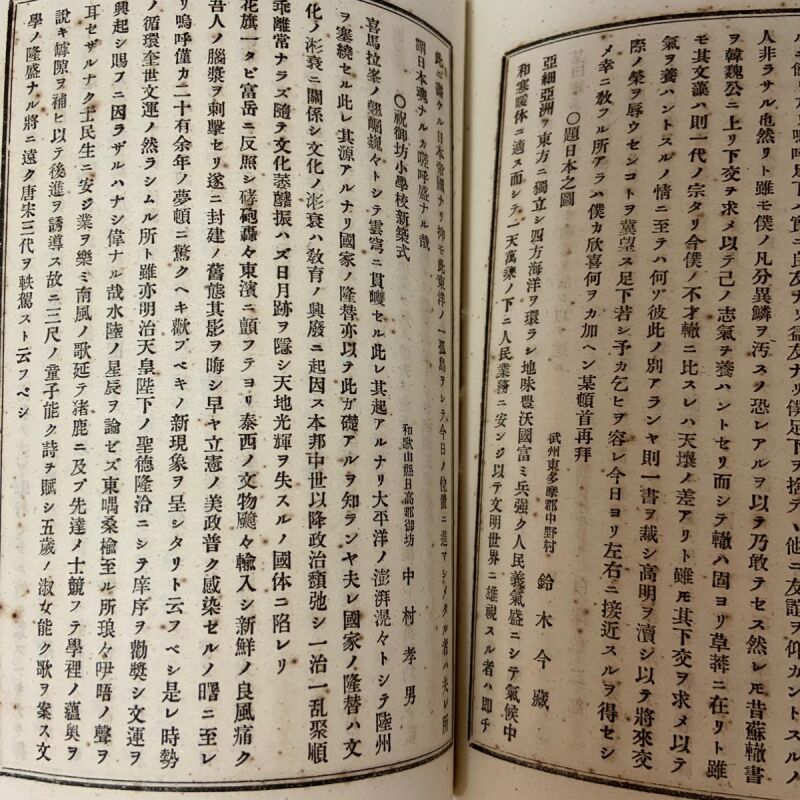 人非ラサル也然リト雖モ僕ノ凡分異鱗ヲ汚スノ恐レアルヲ以テ乃敢テセス然レ𪜈昔蘇轍書
ヲ韓魏公ニ上リ下交ヲ求メ以テ己ノ志氣ヲ養ハントセリ而シテ轍ハ固ヨリ草莽ニ在リト雖
モ其文漢ハ則一代ノ宗タリ今僕ノ不才轍ニ比スレハ天壤ノ差アリト雖𪜈其下交ヲ求メ以テ
氣ヲ養ハントスルノ情ニ至テハ何ゾ彼此ノ別アランヤ則一書ヲ裁シ高明ヲ瀆シ以テ將來交
際ノ榮ヲ辱ウセンコトヲ冀望ス足下若シ予カ乞ヒヲ容レ今日ヨリ左右ニ接近スルヲ得セシ
メ幸ニ敎フル所アラハ僕カ欣喜何ヲカ加ヘン某頓首再拜
〇題日本之圖
武州東多摩郡中野村 鈴木今藏
亞細亞洲ノ東方ニ獨立シ四方海洋ヲ環ラシ地味豐沃國富ミ兵強ク人民義氣盛ニシテ氣候中
和寒暖体ニ適ス而シテ一天萬乘ノ下ニ人民業務ニ安ンジ以テ文明世界ニ雄視スル者ハ即チ
此ニ畵ケル日本帝國ナリ抑モ此東洋ノ一孤島ヲシテ今日ノ位置ニ進マシメタル者ハ夫レ所
謂日本魂ナルカ嗟呼盛ナル哉
〇祝御坊小學校新築式
和歌山縣日高郡御坊 中村孝男
喜馬拉峯ノ翹崛巍々トシテ雲穹ニ貫巉セル此レ其起アルナリ大平洋ノ澎湃滉々トシテ陸州
ヲ塞繞セル此レ其源アルナリ國家ノ隆替亦以テ此ガ礎アルヲ知ランヤ夫レ國家ノ隆替ハ文
化ノ浵衰ニ關係シ文化ノ浵衰ハ敎育ノ興廢ニ起因ス本邦中世以降政治頽弛シ一治一乱聚順
乖離常ナラズ隨テ文化萎靡振ハズ日月跡ヲ隱シ天地光輝ヲ失スルノ國体ニ陷レリ
花旗一タビ富岳ニ反照シ硣砲轟々東濱ニ顫フテヨリ泰西ノ文物飈々輸入シ新鮮ノ良風痛ク
吾人ノ腦漿ヲ刺擊セリ遂ニ封建ノ舊態其影ヲ晦シ早ヤ立憲ノ美政普ク感染セルノ曙ニ至レ
リ嗚呼僅カ二十有余年ノ夢頓ニ驚クヘキ歡フベキノ新現象ヲ呈シタリト云フベシ是レ時勢
ノ循環奎世文運ノ然ラシムル所ト雖亦明治天皇陛下ノ聖德隆洽ニシテ庠序ヲ勸奬シ文運ヲ
興起シ賜フニ因ラザルハナシ偉ナル哉水陸ノ星辰ヲ論ゼズ東嵎桑楡至ル所琅々咿唔ノ聲ヲ
耳セザルナク士民生ニ安ジ業ヲ樂ミ南風ノ歌延テ猪鹿ニ及ブ先達ノ士競フテ學裡ノ蘊奧ヲ
說キ罅隙ヲ補ヒ以テ後進ヲ誘導ス故ニ三尺ノ童子能ク詩ヲ賦シ五歲ノ淑女能ク歌ヲ案ス文
學ノ隆盛ナル將ニ遠ク唐宋三代ヲ軼駕スト云フベシ